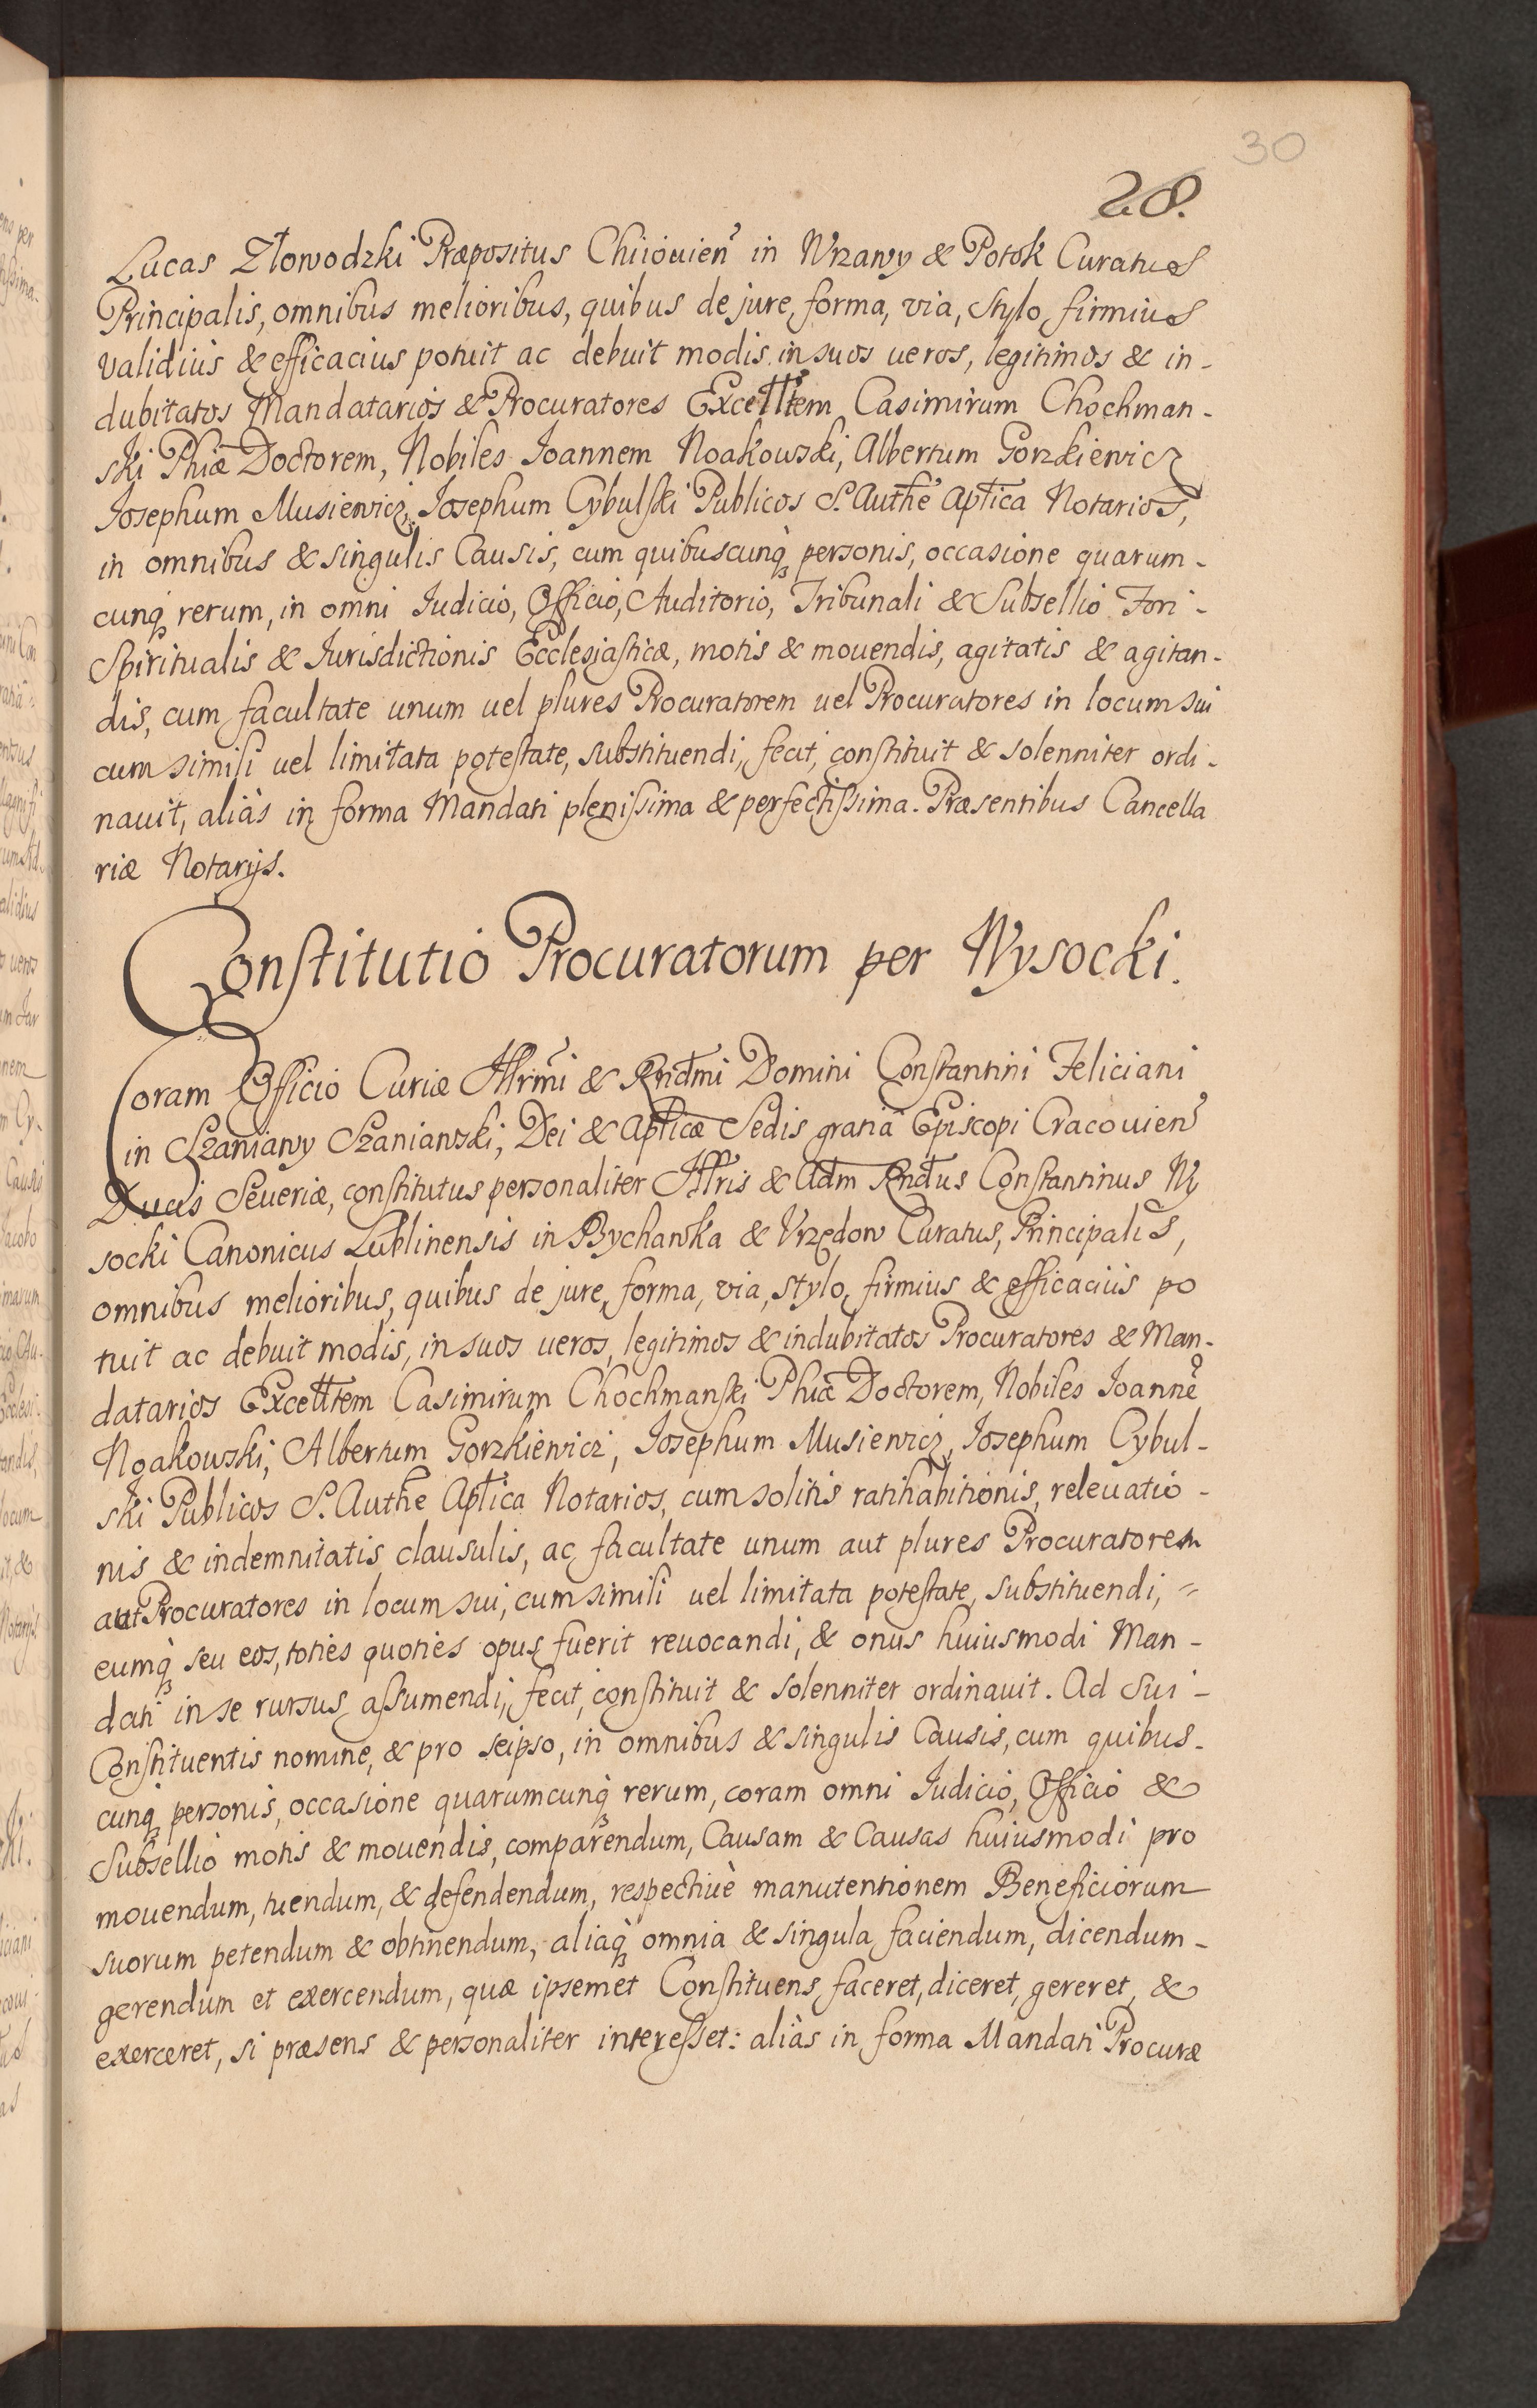 30
28.
Lucas Złowodzki Præpositus Chiiouien̄ in Wrzawy & Potok Curatus
Principalis, omnibus melioribus, quibus de jure, forma, via, stylo firmius
validius & efficacius potuit ac debuit modis in suos ueros, legitimos & in-
dubitatos Mandatarios & Procuratores Excellt̄em Casimirum Chochman-
ski Phiæ Doctorem, Nobiles Joannem Noakowski, Albertum Gorzkiewicz
Josephum Musiewicz, Josephum Cybulski Publicos S. Authē Aptīca Notarios,
in omnibus & singulis Causis, cum quibuscunq̃ personis, occasione quarum-
cunq̃ rerum, in omni Judicio, Officio, Auditorio, Tribunali & Subsellio Fori-
Spiritualis & Jurisdictionis Ecclesiasticæ, motis & mouendis, agitatis & agitan-
dis, cum facultate unum uel plures Procuratorem uel Procuratores in locum sui
cum simili uel limitata potestate, substituendi, fecit, constituit & solenniter ordi-
nauit, aliàs in forma Mandati plenissima & perfectissima. Præsentibus Cancella
riæ Notarijs.
Constitutio Procuratorum per Wysocki.
Coram Officio Curiæ Illrm̄i & Rnd̄mi Domini Constantini Feliciani
in Szaniawy Szaniawski, Dei & Aptīcæ Sedis gratiâ Episcopi Cracouien̄
Ducis Seueriæ, constitutus personaliter Illris & Adm Rnd̄us Constantinus Wy
socki Canonicus Lublinensis in Bychawka & Vrzędow Curatus, Principalis,
omnibus melioribus, quibus de jure, forma, via, stylo, firmius & efficaciùs po
tuit ac debuit modis, in suos ueros, legitimos & indubitatos Procuratores & Man-
datarios Excellt̄em Casimirum Chochmanski Phiæ Doctorem, Nobiles Joannē
Noakowski, Albertum Gorzkiewicz, Josephum Musiewicz, Josephum Cybul-
ski Publicos S. Authē Aptīca Notarios, cum solitis ratihabitionis, releuatio-
nis & indemnitatis clausulis, ac facultate unum aut plures Procuratorem
aut Procuratores in locum sui, cum simili uel limitata potestate, substituendi,
eumq̃ seu eos, toties quoties opus fuerit reuocandi, & onus huiusmodi Man-
dati in se rursus assumendi, fecit, constituit & solenniter ordinauit. Ad Sui-
Constituentis nomine, & pro seipso, in omnibus & singulis Causis, cum quibus-
cunq̃ personis, occasione quarumcunq̃ rerum, coram omni Judicio, Officio &
Subsellio motis & mouendis, comparendum, Causam & Causas huiusmodi pro
mouendum, tuendum, & defendendum, respectiuè manutentionem Beneficiorum
suorum petendum & obtinendum, aliaq̃ omnia & singula faciendum, dicendum-
gerendum et exercendum, quæ ipsemet Constituens faceret, diceret, gereret, &
exerceret, si præsens & personaliter interesset: aliàs in forma Mandati Procuræ